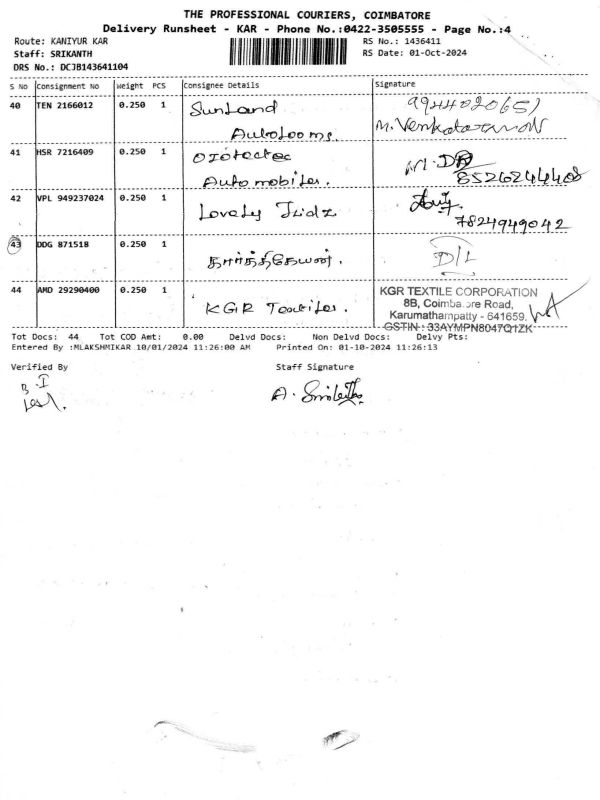 THE PROFESSIONAL COURIERS, COIMBATORE
Delivery Runsheet - KAR - Phone No.:0422-3505555 - Page No.:4
Route: KANIYUR KAR
Staff: SRIKANTH
DRS No.: DCJB143641104
RS No.: 1436411
RS Date: 01-Oct-2024
S No Consignment No Weight PCS Consignee Details Signature
40 TEN 2166012 0.250 1 Sunland
Autolooms.
M. Venkatasamy
41 HSR 7216409 0.250 1
Automobiles.
8526244408
42 VPL 949237024 0.250 1 Lovely Kidz
7824949042
43 DDG 871518 0.250 1 கார்த்திகேயன். D/L
44 AMD 29290400 0.250 1 KGR Textiles.
KGR TEXTILE CORPORATION
8B, Coimbatore Road,
Karumathampatty - 641659.
GSTIN : 33AYMPN8047Q1ZK
Tot Docs: 44 Tot COD Amt: 0.00 Delvd Docs: Non Delvd Docs: Delvy Pts:
Entered By :MLAKSHMIKAR.10/01/2024 11:26:00 AM Printed On: 01-10-2024 11:26:13
Verified By Staff Signature